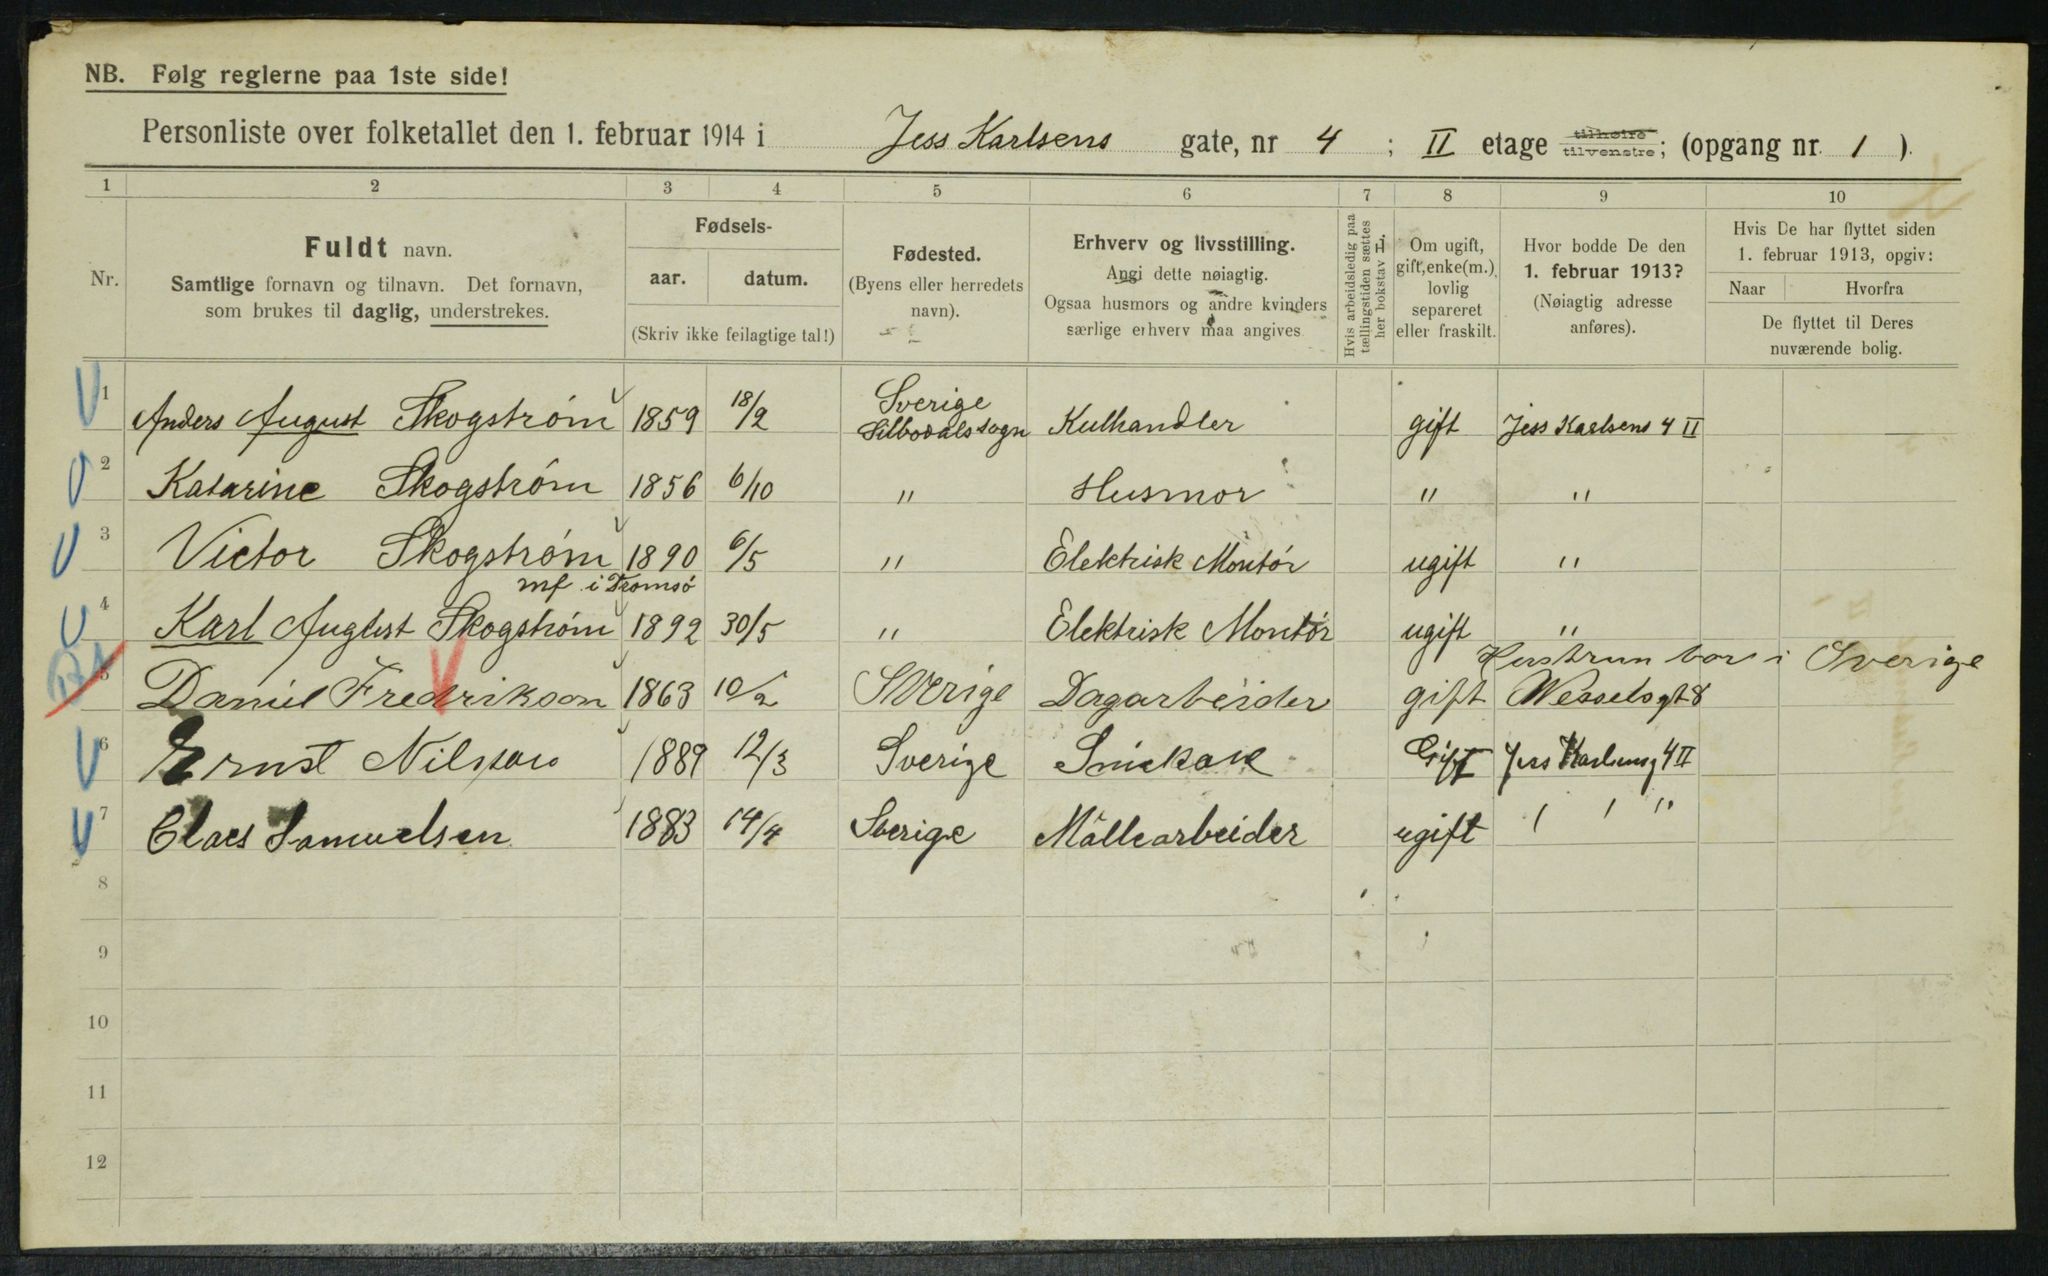 NB. Følg reglerne paa 1ste side!
Personliste over folketallet den 1. februar 1914 i Jess Karlsens gate, nr 4 ; II etage tilhøire tilvenstre; (opgang nr. 1 ).
1 2 3 4 5 6 7 8 9 10
Nr.
Fuldt navn.
Samtlige fornavn og tilnavn. Det fornavn,
som brukes til daglig, understrekes.
Fødsels-
aar. datum.
(Skriv ikke feilagtige tal!)
Fødested.
(Byens eller herredets
navn).
Erhverv og livsstilling.
Angi dette nøiagtig.
Ogsaa husmors og andre kvinders
særlige erhverv maa angives
Hvis arbeidsledig paa
tællingstiden sættes
her bokstav L.
Om ugift,
gift, enke(m.)
lovlig
separeret
eller fraskilt.
Hvor bodde De den
1. februar 1913?
(Nøiagtig adresse
anføres).
Hvis De har flyttet siden
1. februar 1913, opgiv:
Naar Hvorfra
De flyttet til Deres
nuværende bolig.
1 Anders August Skogstrøm 1859 18/2 Sverige Silbodals sogn Kulhandler gift Jess Karlsens 4 II
2 Katarine Skogstrøm 1856 6/10 " Husmor " "
3 Victor Skogstrøm 1890 6/5 " Elektrisk Montør ugift "
mf i Tromsø
4 Karl August Skogstrøm 1892 30/5 " Elektrisk Montør ugift "
Hustrun bor i Sverige
5 Daniel Fredrikson 1863 10/2 Sverige Dagarbeider gift Wesselsgt 8
6 Ernst Nilsson 1889 12/3 Sverige Snickare Gift Jess Karlsensg 4 II
7 Claes Samuelsen 1883 14/4 Sverige Mållearbeider ugift " "
8
9
10
11
12